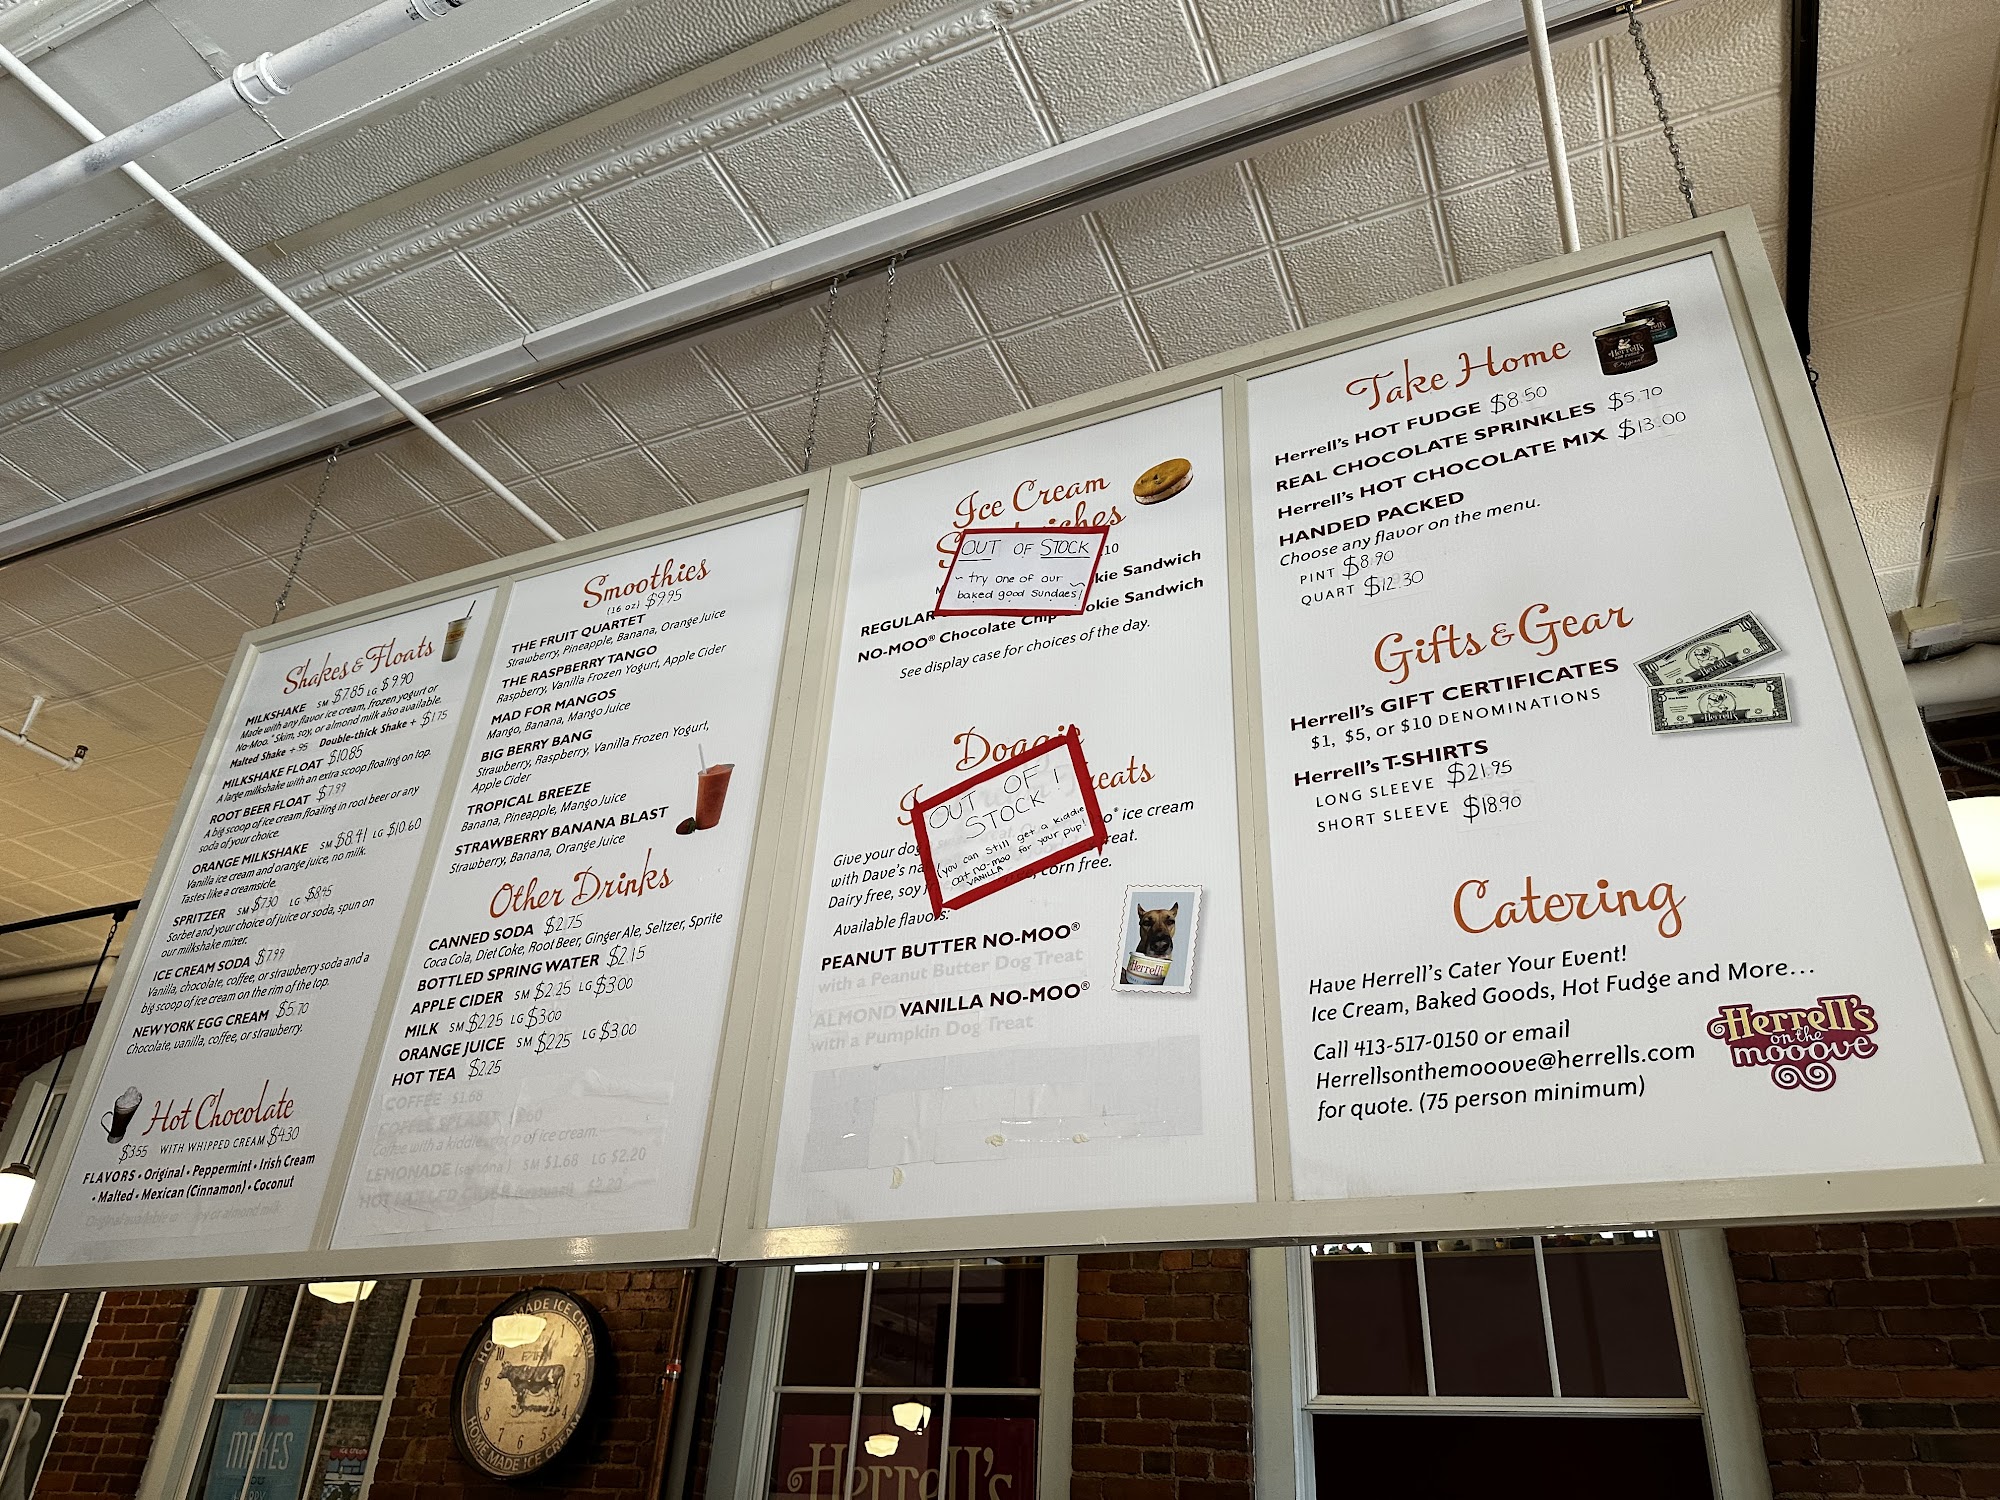 Shakes & Floats
MILKSHAKE SM $7.85 LG $9.90
Made with any flavor ice cream, frozen yogurt or
No-Moo.® Skim, soy, or almond milk also available.
Malted Shake + .95 Double-thick Shake + $1.75
MILKSHAKE FLOAT $10.85
A large milkshake with an extra scoop floating on top.
ROOT BEER FLOAT $7.99
A big scoop of ice cream floating in root beer or any
soda of your choice.
ORANGE MILKSHAKE SM $8.41 LG $10.60
Vanilla ice cream and orange juice, no milk.
Tastes like a creamsicle.
SPRITZER SM $7.30 LG $8.45
Sorbet and your choice of juice or soda, spun on
our milkshake mixer.
ICE CREAM SODA $7.99
Vanilla, chocolate, coffee, or strawberry soda and a
big scoop of ice cream on the rim of the top.
NEW YORK EGG CREAM $5.70
Chocolate, vanilla, coffee, or strawberry.
Hot Chocolate
$3.55 WITH WHIPPED CREAM $4.30
FLAVORS • Original • Peppermint • Irish Cream
• Malted • Mexican (Cinnamon) • Coconut
Smoothies
(16 oz) $9.95
THE FRUIT QUARTET
Strawberry, Pineapple, Banana, Orange Juice
THE RASPBERRY TANGO
Raspberry, Vanilla Frozen Yogurt, Apple Cider
MAD FOR MANGOS
Mango, Banana, Mango Juice
BIG BERRY BANG
Strawberry, Raspberry, Vanilla Frozen Yogurt,
Apple Cider
TROPICAL BREEZE
Banana, Pineapple, Mango Juice
STRAWBERRY BANANA BLAST
Strawberry, Banana, Orange Juice
Other Drinks
CANNED SODA $2.75
Coca Cola, Diet Coke, Root Beer, Ginger Ale, Seltzer, Sprite
BOTTLED SPRING WATER $2.15
APPLE CIDER SM $2.25 LG $3.00
MILK SM $2.25 LG $3.00
ORANGE JUICE SM $2.25 LG $3.00
HOT TEA $2.25
COFFEE $1.68
Coffee with a kiddie scoop of ice cream.
LEMONADE SM $1.68 LG $2.20
Ice Cream
OUT OF STOCK
~ try one of our ~
baked good sundaes!
.10
kie Sandwich
REGULAR okie Sandwich
NO-MOO® Chocolate Chip
See display case for choices of the day.
Doggie
Treats
OUT OF
STOCK!
(you can still get a kiddie
oat no-moo for your pup!)
VANILLA
Give your dog ice cream
with Dave's treat.
Dairy free, soy corn free.
Available flavors:
PEANUT BUTTER NO-MOO®
with a Peanut Butter Dog Treat
ALMOND VANILLA NO-MOO®
with a Pumpkin Dog Treat
Herrell's
Take Home
Herrell's
Original
Herrell's HOT FUDGE $8.50
REAL CHOCOLATE SPRINKLES $5.70
Herrell's HOT CHOCOLATE MIX $13.00
HANDED PACKED
Choose any flavor on the menu.
PINT $8.90
QUART $12.30
Gifts & Gear
Herrell's GIFT CERTIFICATES
$1, $5, or $10 DENOMINATIONS
Herrell's T-SHIRTS
LONG SLEEVE $21.95
SHORT SLEEVE $18.90
Catering
Have Herrell's Cater Your Event!
Ice Cream, Baked Goods, Hot Fudge and More...
Call 413-517-0150 or email
Herrellsonthemooove@herrells.com
for quote. (75 person minimum)
Herrell's
on the
mooove
HOME MADE ICE CREAM
HOME MADE ICE CREAM
MAKES
YOU
Herrell's